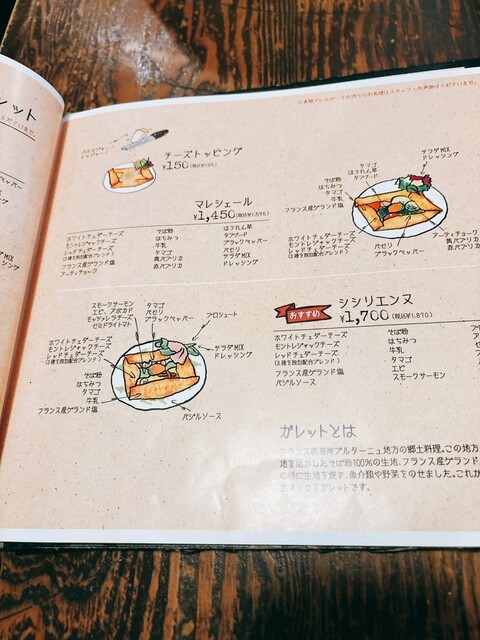 レット
チーズトッピング
¥150(税込¥165)
マレシェール
¥1,450(税込¥1,595)
ホワイトチェダーチーズ
モントレジャックチーズ
レッドチェダーチーズ
(3種を独自配合ブレンド)
フランス産ゲランド塩
アーティチョーク
そば粉
はちみつ
牛乳
タマゴ
黄パプリカ
赤パプリカ
ほうれん草
タプナード
ブラックペッパー
パセリ
サラダMIX
ドレッシング
タマゴ
ほうれん草
タプナード
そば粉
はちみつ
タマゴ
牛乳
フランス産ゲランド塩
サラダMIX
ドレッシング
ホワイトチェダーチーズ
モントレジャックチーズ
レッドチェダーチーズ
(3種を独自配合ブレンド)
パセリ
ブラックペッパー
アーティチョーク
黄パプリカ
赤パプリカ
スモークサーモン
エビ、アボカド
モッツァレラチーズ
セミドライトマト
タマゴ
パセリ
ブラックペッパー
プロシュート
サラダMIX
ドレッシング
ホワイトチェダーチーズ
モントレジャックチーズ
レッドチェダーチーズ
(3種を独自配合ブレンド)
そば粉
はちみつ
タマゴ
牛乳
フランス産ゲランド塩
バジルソース
おすすめ
シシリエンヌ
¥1,700(税込¥1,870)
ホワイトチェダーチーズ
モントレジャックチーズ
レッドチェダーチーズ
(3種を独自配合ブレンド)
フランス産ゲランド塩
バジルソース
そば粉
はちみつ
牛乳
タマゴ
エビ
スモークサーモン
ガレットとは
フランス西海岸ブルターニュ地方の郷土料理。この地方
地を活かしたそば粉100%の生地、フランス産ゲランド
の種に生地を焼き、魚介類や野菜をのせました。これが
ガレットです。